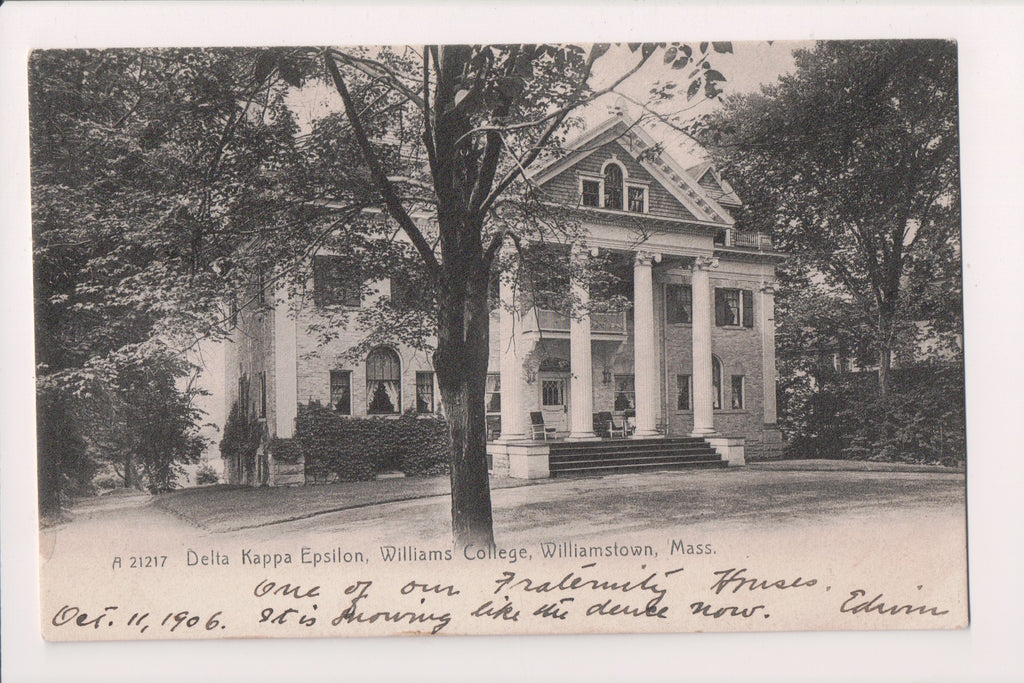 A 21217 Delta Kappa Epsilon, Williams College, Williamstown, Mass.
One of our Fraternity Houses.
Oct. 11, 1906. It is snowing like the deuce now. Edwin